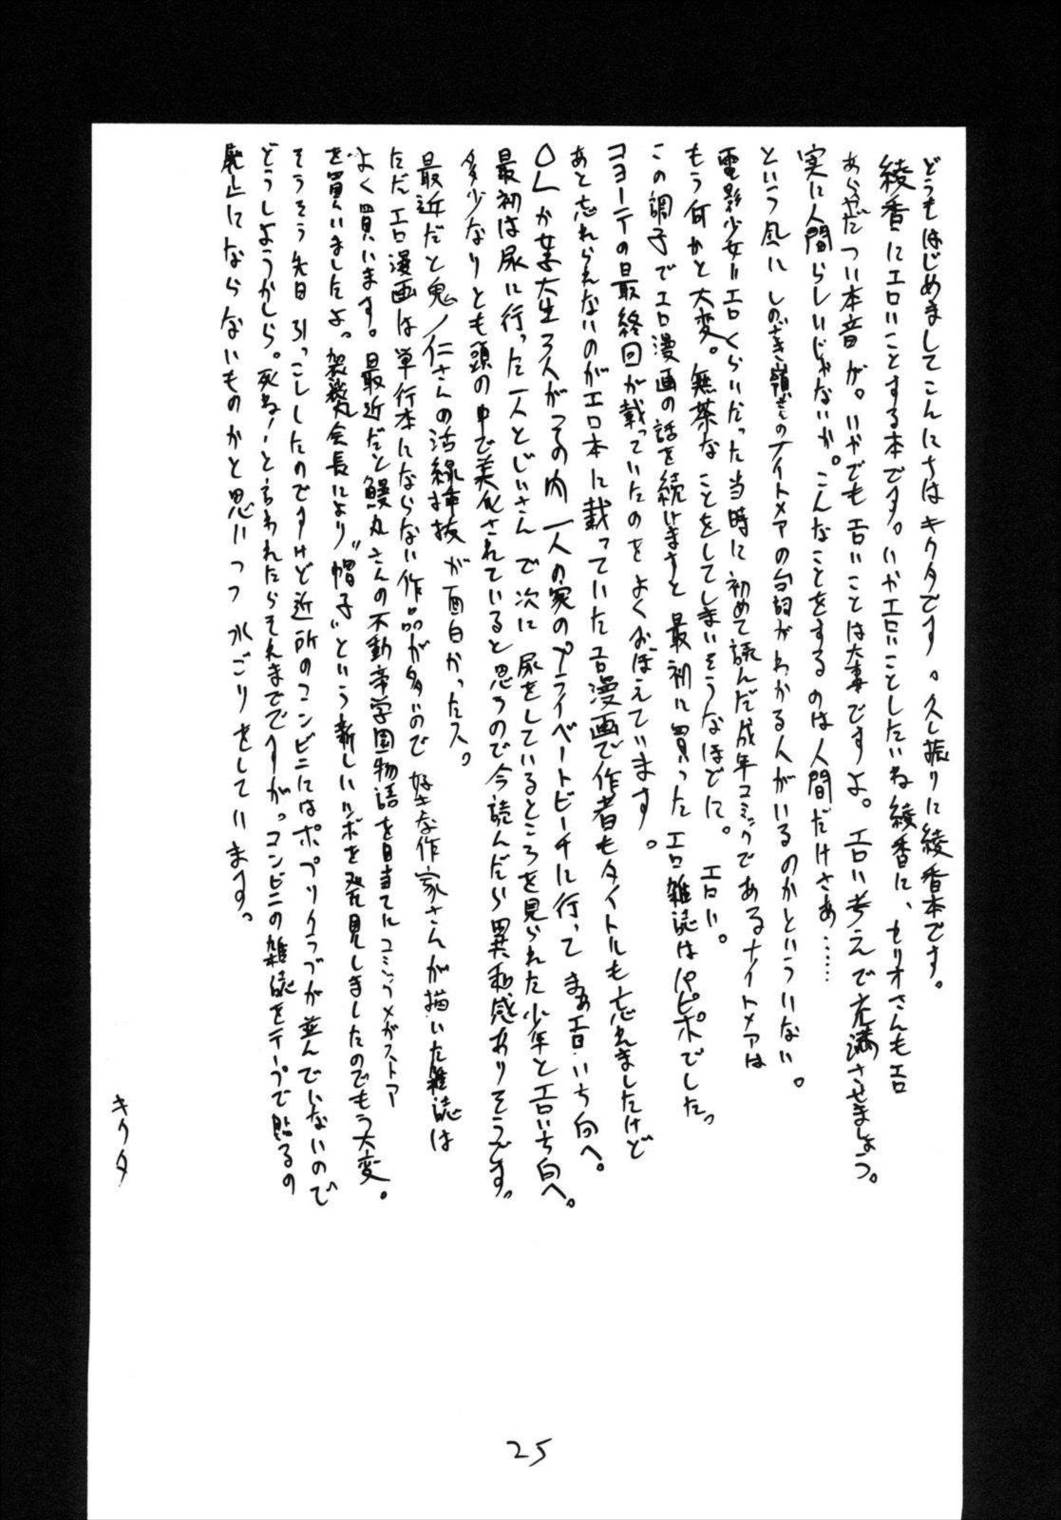 どうもはじめましてこんにちはキクタです。久し振りに綾香本です。
綾香にエロいことする本です。いやエロいことしたいね綾香に、セリオさんもエロ
あらやだつい本音が。いやでもエロいことは大事ですよ。エロい考えで充満させましょう。
実に人間らしいじゃないか。こんなことをするのは人間だけさあ……
という風にしのざき嶺のナイトメアの台詞がわかる人がいるのかといういない。
電影少女＝エロくらいだった当時に初めて読んだ成年コミックであるナイトメアは
もう何かと大変。無茶なことをしてしまいそうなほどに。エロい。
この調子でエロ漫画の話を続けますと最初に買ったエロ雑誌はパピポでした。
コヨーテの最終回が載っていたのをよくおぼえています。
あと忘れられないのがエロ本に載っていたエロ漫画で作者もタイトルも忘れましたけど
OLか女子大生3人がその内一人の家のプライベートビーチに行ってまあエロいち向へ。
最初は尿に行った一人とじいさんで次に尿をしているところを見られた少年とエロいち向へ。
多少なりとも頭の中で美化されていると思うので今読んだら異和感ありそうです。
最近だと鬼ノ仁さんの活線挿抜が面白かったス。
ただエロ漫画は単行本にならない作品が多いので好きな作家さんが描いた雑誌は
よく買います。最近だと鰻丸さんの不動帝学園物語を目当てにコミックメガストア
を買いましたよ。袈裟丸会長により"帽子"という新しいツボを発見しましたのでもう大変。
そうそう先日引っこししたのですけど近所のコンビニにはポプリクラブが並んでいないので
どうしようかしら。死ね！と言われたらそれまでですが。コンビニの雑誌をテープで貼るの
廃止にならないものかと思いつつ水ごりをしています。
キクタ
25